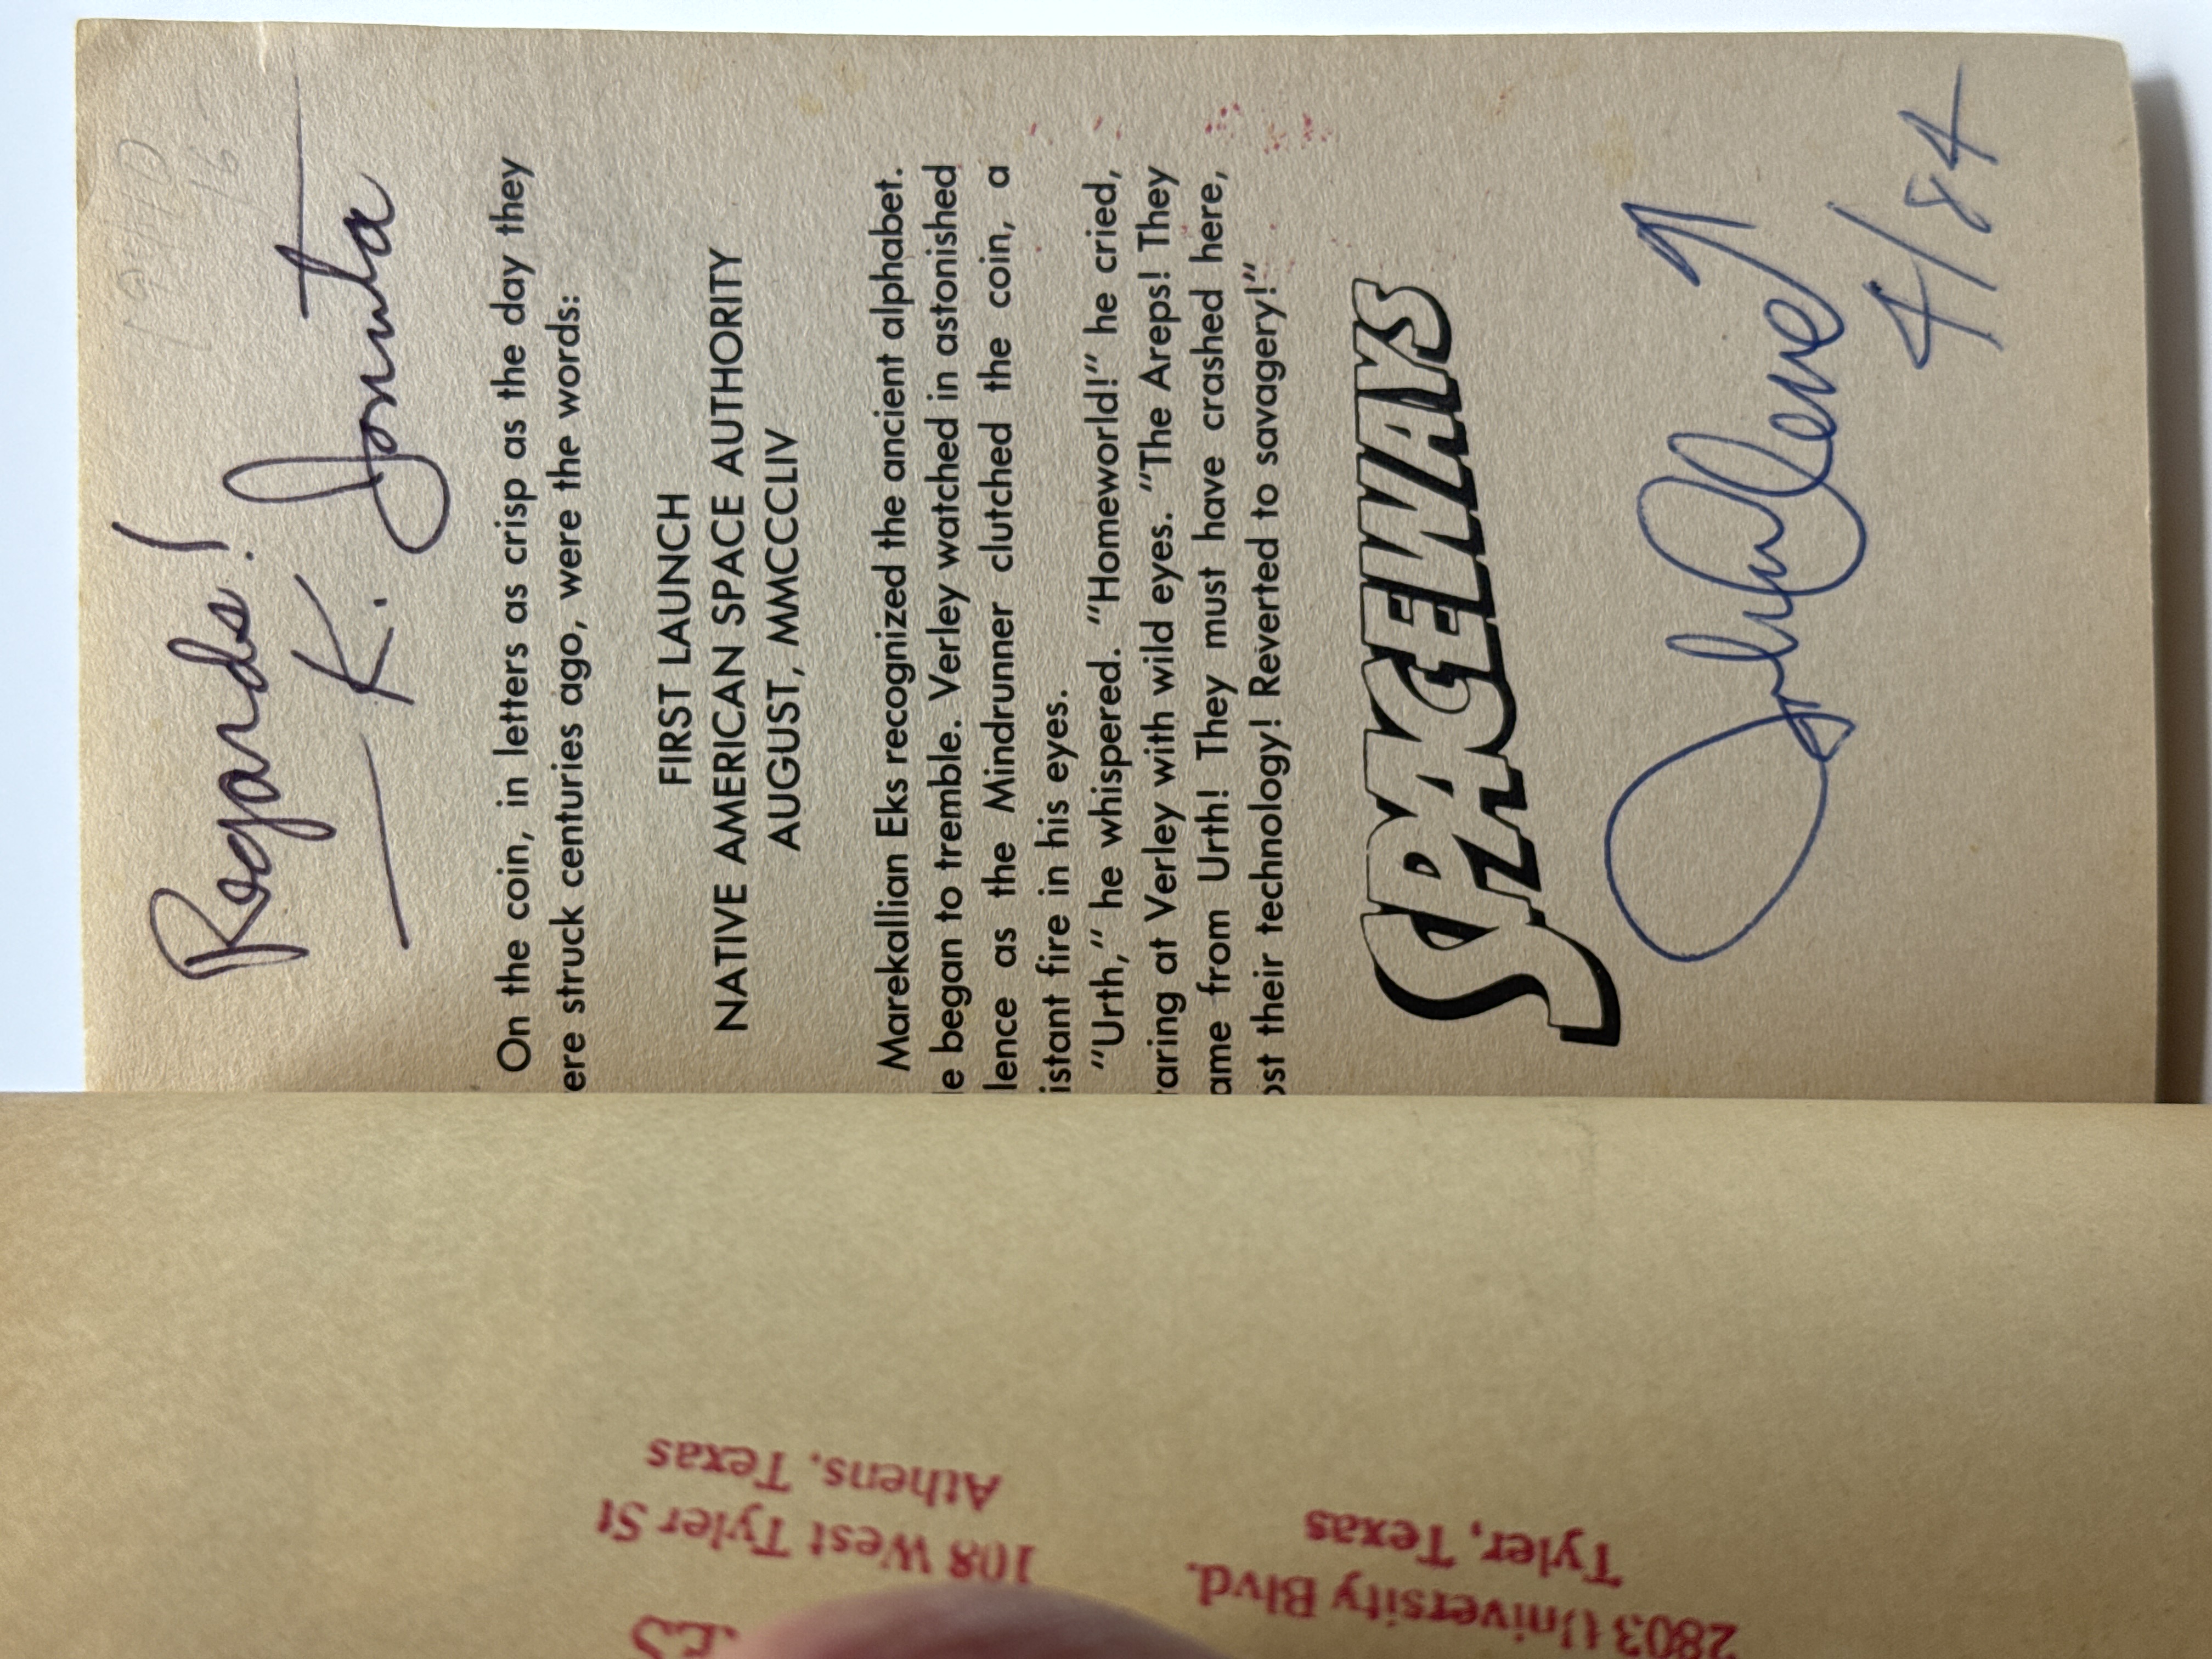 Regards!
— K. Jonuta
On the coin, in letters as crisp as the day they
ere struck centuries ago, were the words:
FIRST LAUNCH
NATIVE AMERICAN SPACE AUTHORITY
AUGUST, MMCCCLIV
Marekallian Eks recognized the ancient alphabet.
e began to tremble. Verley watched in astonished
lence as the Mindrunner clutched the coin, a
istant fire in his eyes.
"Urth," he whispered. "Homeworld!" he cried,
aring at Verley with wild eyes. "The Areps! They
ame from Urth! They must have crashed here,
ost their technology! Reverted to savagery!"
SPACEWAYS
John Cleve
4/84
108 West Tyler St
Athens, Texas
2803 University Blvd.
Tyler, Texas